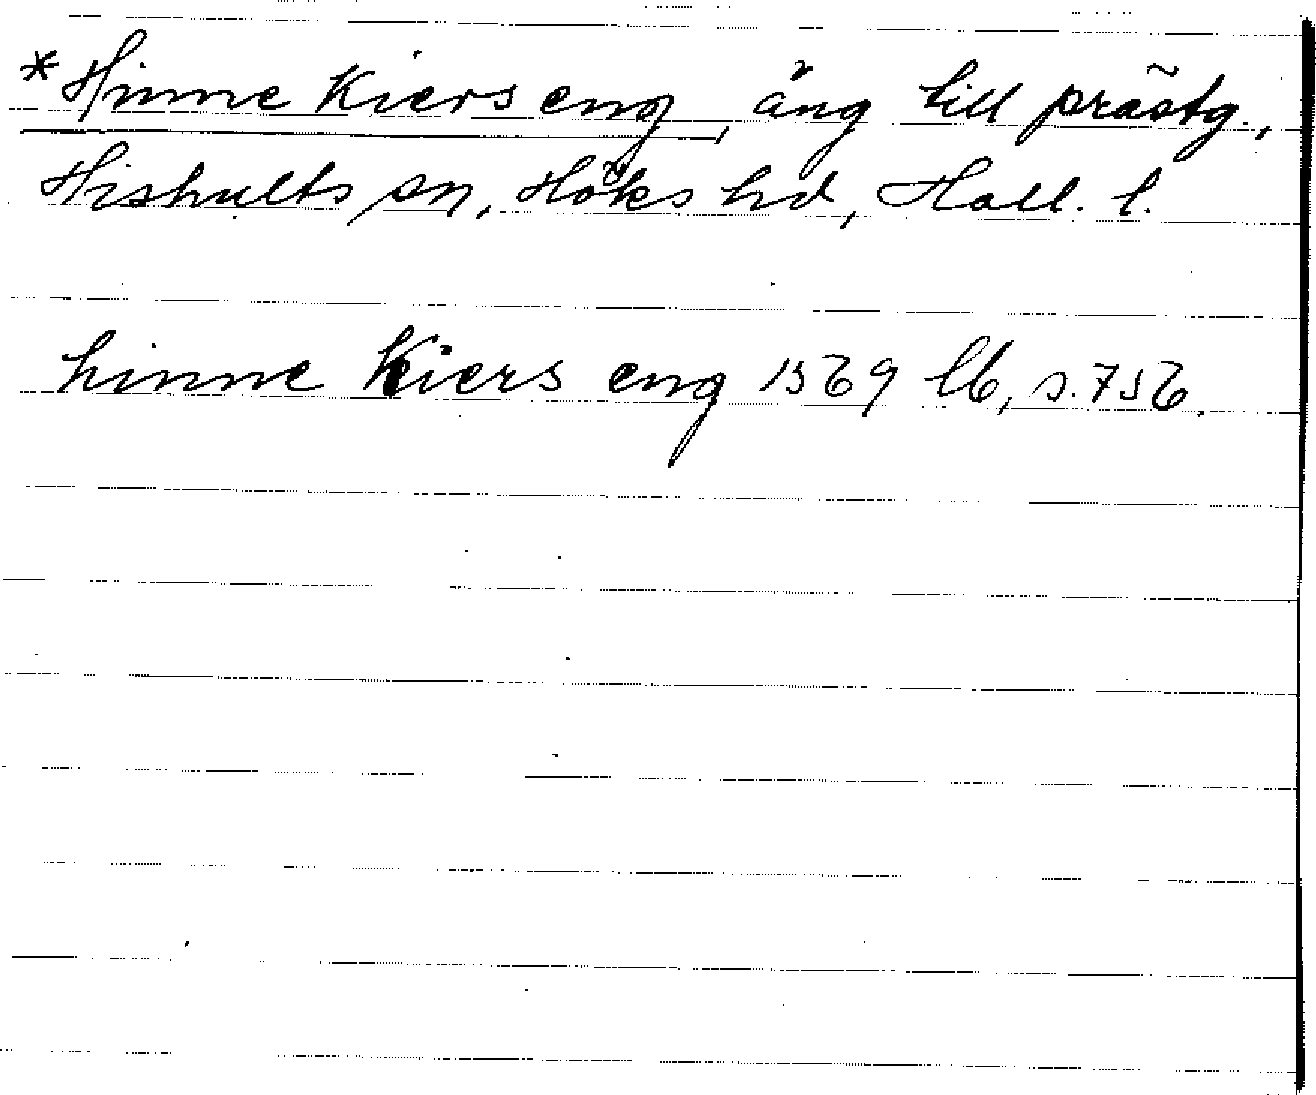 *Hinne Kiers eng, äng till prästg.,
Hishults sn, Höks hd, Hall. l.
hinne Kiers eng 1569 lb, s. 756.